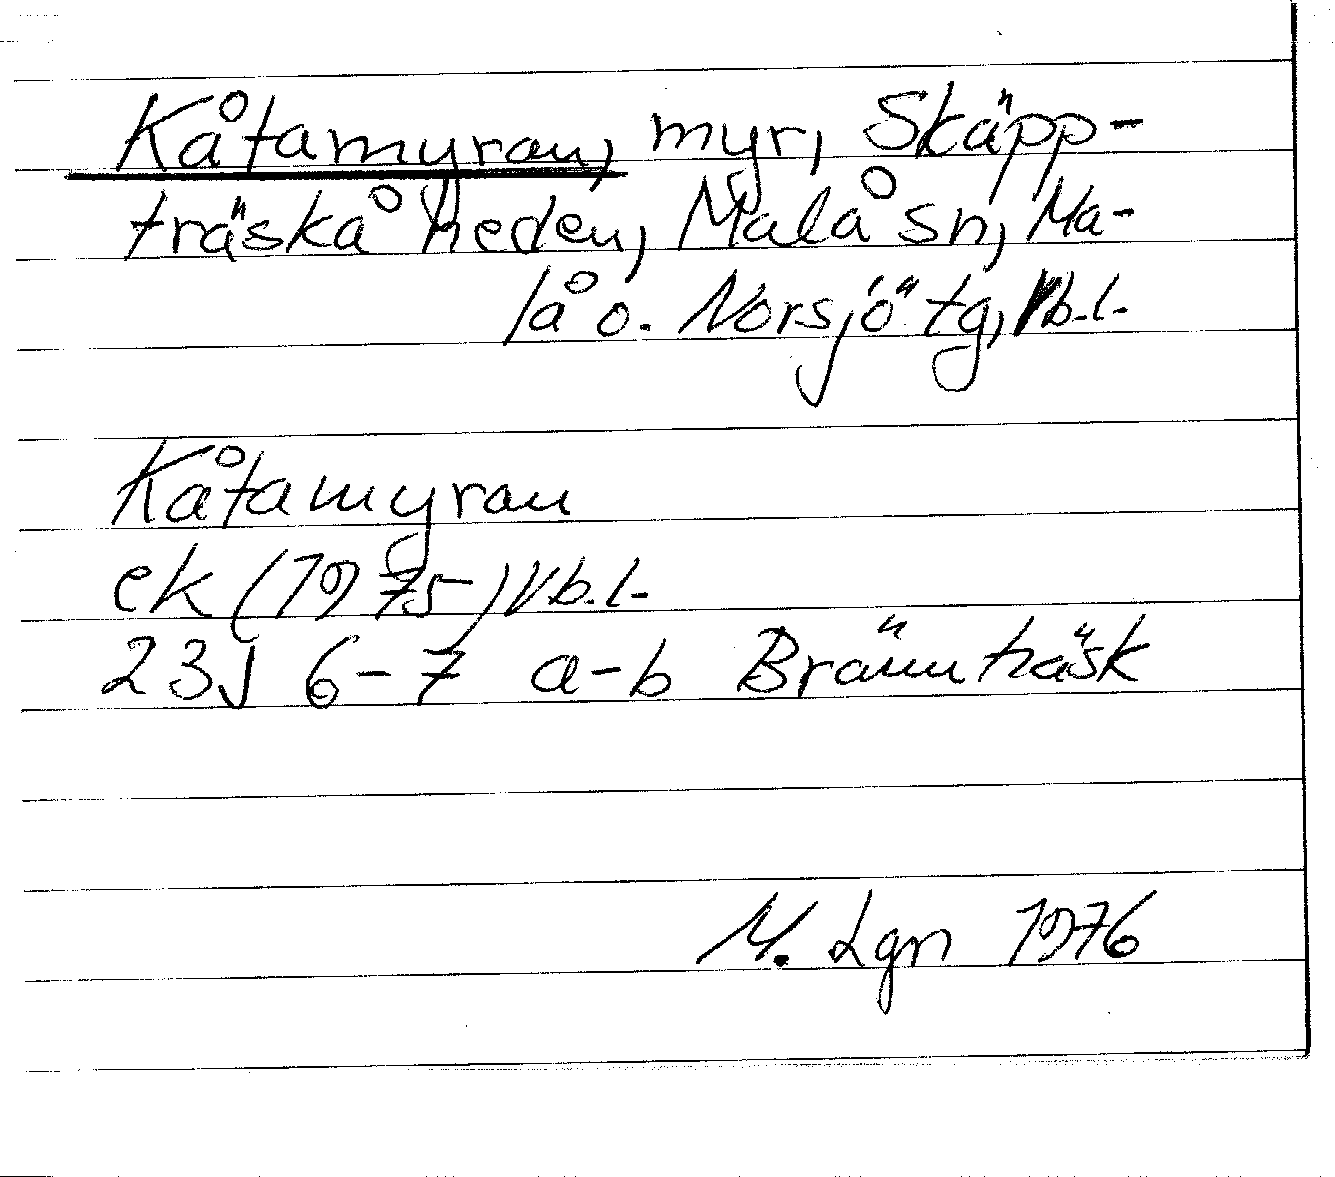 Kåtamyran, myr, Skäpp-
träskå heden, Malå sn, Ma-
lå o. Norsjö tg, Vb.l.
Kåtamyran
ek (1975) Vb.l.
23J 6-7 a-b Brännträsk
M. Lgn 1976